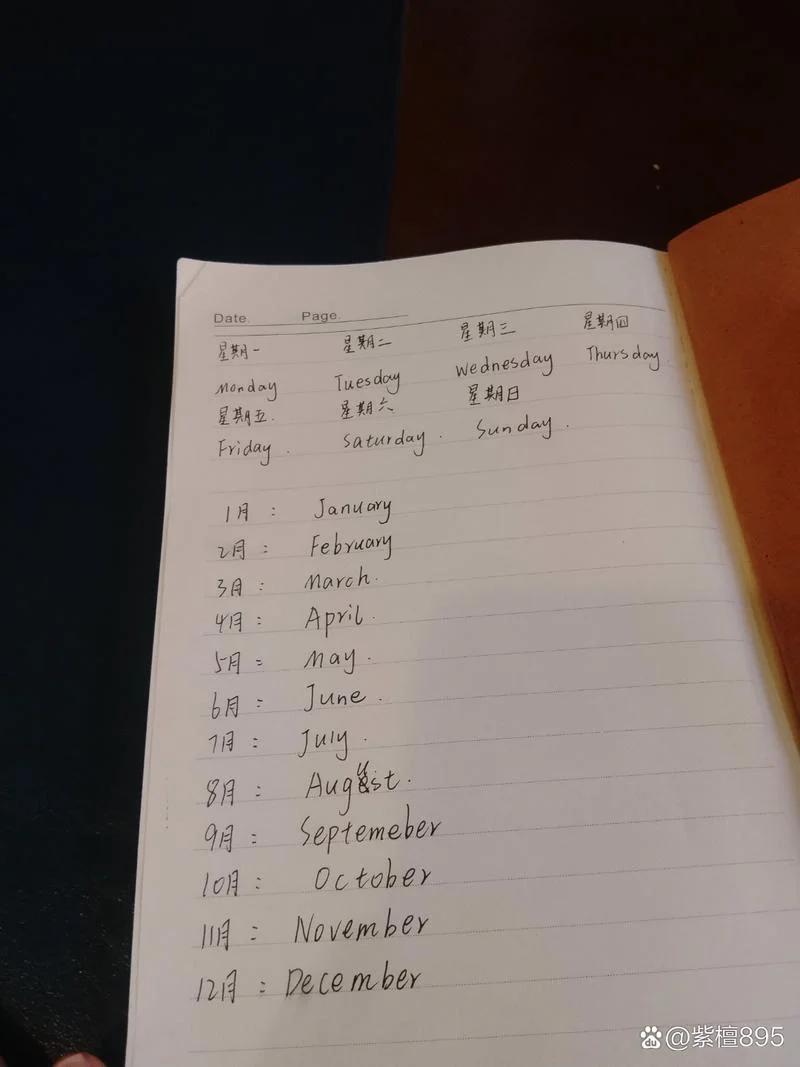 Date. Page.
星期一 星期二 星期三 星期四
Monday Tuesday Wednesday Thursday
星期五. 星期六 星期日
Friday. Saturday. Sunday.
1月: January
2月: February
3月: March.
4月: April.
5月: May.
6月: June.
7月: July.
8月: August.
9月: Septemeber
10月: October
11月: November
12月: December
Bai du @紫檀895